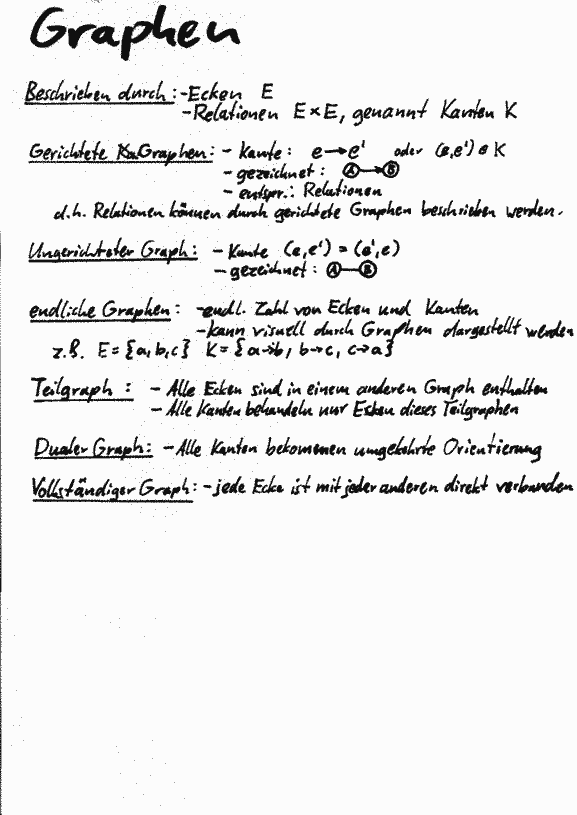 Graphen
Beschrieben durch: - Ecken E
- Relationen E×E, genannt Kanten K
Gerichtete Graphen: - Kante: e→e' oder (e,e') ∈ K
- gezeichnet: A→B
- entspr.: Relationen
d.h. Relationen können durch gerichtete Graphen beschrieben werden.
Ungerichteter Graph: - Kante (e,e') = (e',e)
- gezeichnet: A—B
endliche Graphen: - endl. Zahl von Ecken und Kanten
- kann visuell durch Graphen dargestellt werden
z.B. E={a,b,c} K={a→b, b→c, c→a}
Teilgraph: - Alle Ecken sind in einem anderen Graph enthalten
- Alle Kanten behandeln nur Ecken dieses Teilgraphen
Dualer Graph: - Alle Kanten bekommen umgekehrte Orientierung
Vollständiger Graph: - jede Ecke ist mit jeder anderen direkt verbunden